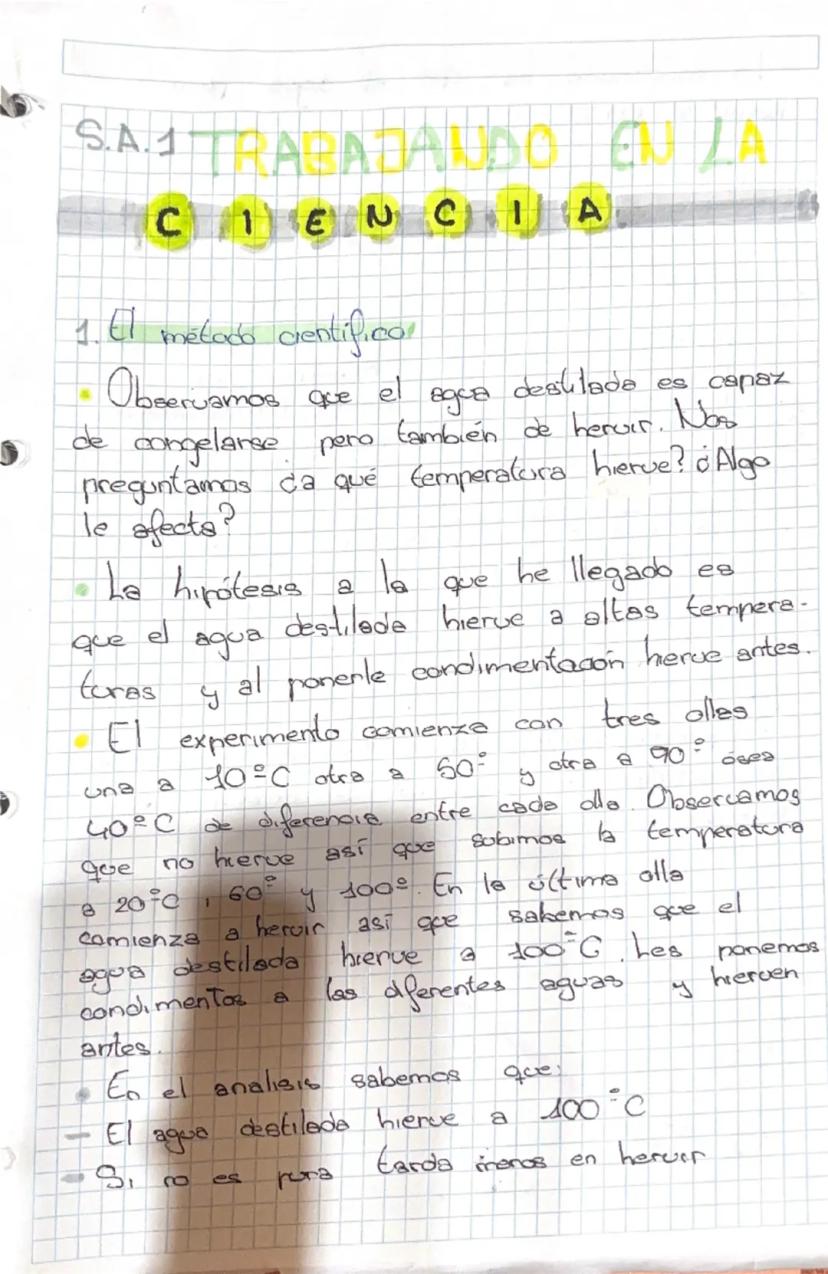 S.A.1 TRABAJANDO EN LA
CIENCIA
1. El método científico
• Observamos que el agua destilada es capaz
de congelarse pero también de hervir. Nos
preguntamos ¿a qué temperatura hierve? ¿Algo
le afecta?
• La hipótesis a la que he llegado es
que el agua destilada hierve a altas tempera-
turas y al ponerle condimentación hierve antes.
• El experimento comienza con tres ollas
una a 10ºC otra a 50º y otra a 90º osea
40ºC de diferencia entre cada olla. Observamos
que no hierve así que subimos la temperatura
a 20ºC, 60º y 100º. En la última olla
comienza a hervir así que sabemos que el
agua destilada hierve a 100ºC. Les ponemos
condimentos a las diferentes aguas y hierven
antes.
• En el analisis sabemos que:
- El agua destilada hierve a 100ºC
- Si no es pura tarda menos en hervir